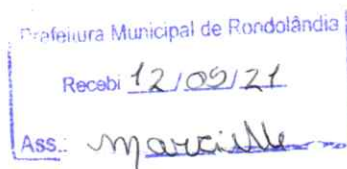 Prefeitura Municipal de Rondolândia
Recebi 12/09/21
Ass.: